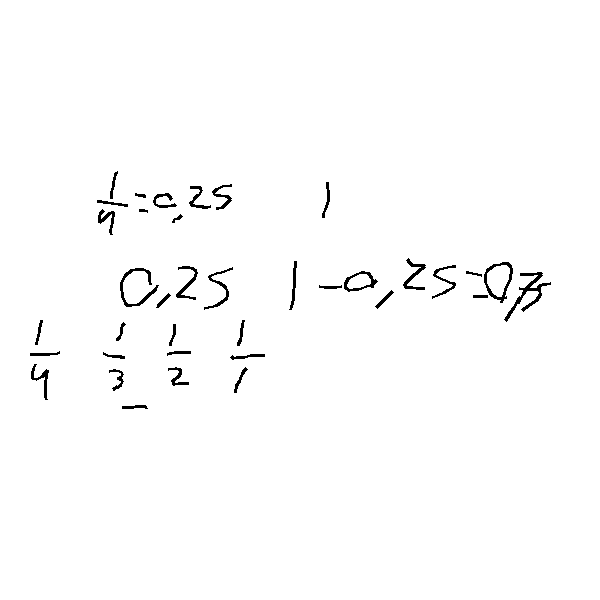 1/4=0,25 1
0,25 1-0,25=0,75
1/4 1/3 1/2 1/1